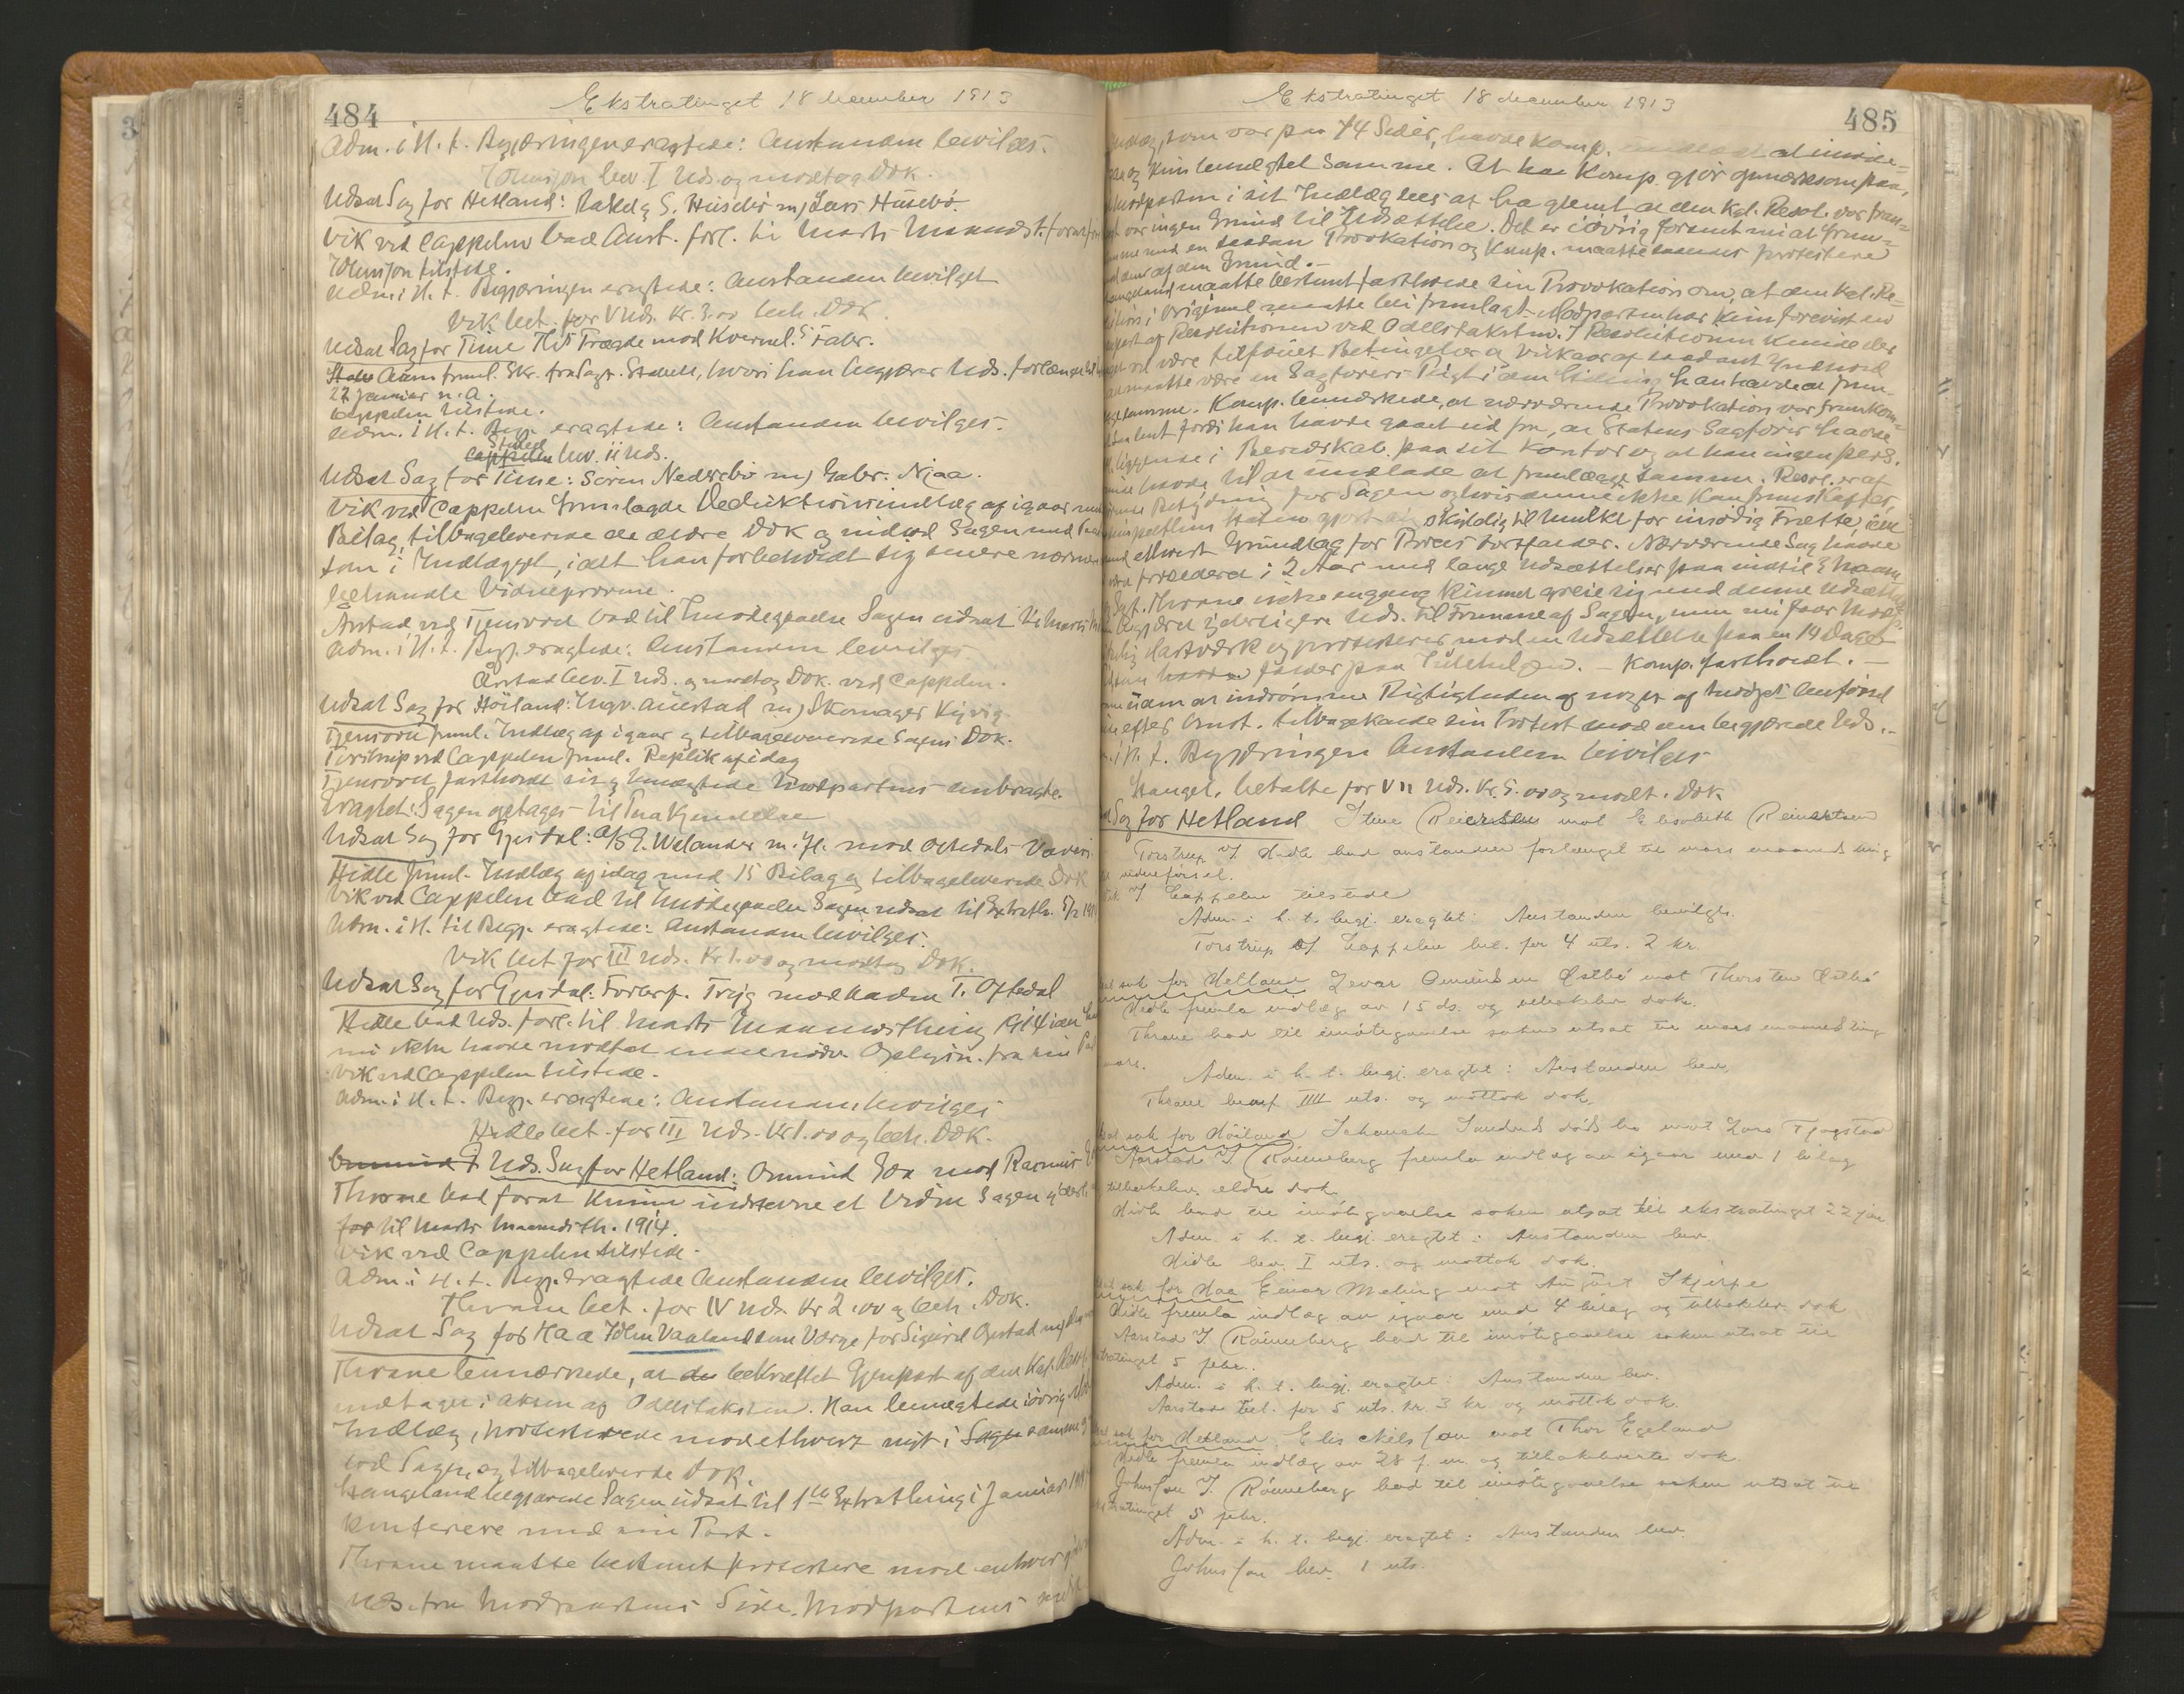 484
Ekstratinget 18 december 1913
Adm. i H. t. Begjæringen eragtede: Anstanden bevilges.
Johnsson bev. I Uds. og modtog Dok.
Udsat Sag for Hetland: Rakel S. Husebö m/ Lars Husebö.
Vik ved Cappelen bad Anst. forl. til Marts Maaneds t. for at
Johnsson tilstede.
Adm. i H. t. Begjæringen eragtede: Anstanden bevilget
Vik bet. for V Uds. Kr. 3.00 beh. Dok.
Udsat Sag for Time Træde mod Kvernel. Fabr.
Adm. freml. Skr. fra Sagf. Stabell, hvori han begjærer Uds. forlænget til
22 Januar n. A.
Cappelen tilstede.
Adm. i H. t. Begj. eragtede: Anstanden bevilges.
Stabell bev. II Uds.
Udsat Sag for Time: Sören Nedrebö m/ Gabr. Njaa.
Vik ved Cappelen fremlagde Deduktionsindlæg af igaar med
Bilag, tilbageleverede de ældre Dok og indlod Sagen med
som i Indlægget, idet han forbeholdt sig senere nærmere
behandle Vidneprovene.
Årstad ved Tjensvold bad til Imödegaaelse Sagen udsat til Marts
Adm. i H. t. Begj. eragtede: Anstanden bevilges
Årstad bev. I Uds. og modtog Dok. ved Cappelen.
Udsat Sag for Höiland: Ingv. Auestad m/ Skomager Kyvig
Tjensvold freml. Indlæg af igaar og tilbageleverede Sagens Dok.
Torstrup ved Cappelen freml. Replik af idag
Tjensvold fastholdt sit og benægtede Modpartens anbragte.
Eragtet: Sagen optages til Kjendelse
Udsat Sag for Gjesdal: A/S E. Welander m. fl. mod Oftedals Væveri
Hidle freml. Indlæg af idag med 15 Bilag og tilbageleverede Dok
Vik ved Cappelen bad til Imödegaaelse Sagen udsat til Extrath. 5/2 1914
Adm. i H. til Begj. eragtede: Anstanden bevilges.
Vik bet for III Uds. Kr 1.00 og modtog Dok.
Udsat Sag for Gjesdal: Tryg mod Maden T. Oftedal
Hidle bad Uds. forl. til Marts Maanedsthing 1914 idet han
nu ikke havde modtat Oplysn. fra sin
Vik ved Cappelen tilstede.
Adm. i H. t. Begj. eragtede: Anstanden bevilges
Hidle bet. for III Uds. Kr 1.00 og beh. Dok.
Uds. Sag for Hetland: Omund mod Rasmus
Thrane bad for at kunne indstevne et Vidne Sagen yderl.
til Marts Maanedsth. 1914.
Vik ved Cappelen tilstede.
Adm. i H. t. Begj. eragtede Anstanden bevilges.
Thrane bet. for IV Uds. Kr 2.00 og beh. Dok.
Udsat Sag for Haa John Vaaland som Værge for Sigurd Opstad m/
Thrane bemærkede, at bekræftet Gjenpart af den Kgl. Resol.
indtages i Akten af Odelstaksten. Han benægtede iövrig
Indlæg, protesterede mod ethvert nyt i samme
lod Sagen, og tilbageleverede Dok.
Hangeland begjærede Sagen udsat til 1ste Extrathing i Januar
konferere med sin Part.
Thrane maatte bestemt protestere mod enhver
Uds. fra Modpartens Side. Modpartens
485
Ekstratinget 18 december 1913
som var paa 14 Sider, havde Komp.
og kun benægtet samme. At Komp. gjör opmærksom paa,
Modparten i sit Indlæg sees at ha glemt at den Kgl. Resol. var
var ingen Grund til Udsættelse. Det er iövrig forsent nu at frem-
komme med en saadan Provokation og Komp. maatte protestere
af den Grund.
Hangeland maatte bestemt fastholde sin Provokation om, at den Kgl. Re-
solution i Original maatte bli fremlagt. Modparten har kun forevist en
Gjenpart af Resolutionen ved Odelstaksten. I Resolutionen kunde der
vel være tilföiet Betingelser og Vilkaar af saadant Indhold
at maatte være en Sagförers Pligt i den Stilling han havde at frem-
lægge samme. Komp. bemærkede, at nærværende Provokation var fremkom-
met fordi han havde gaaet ud fra, at Statens Sagförer havde
liggende i Beredskab paa sit Kontor og at han ingen
havde til at undlade at fremlægge samme. Resol. er af
Betydning for Sagen og hvis denne ikke kan fremskaffes
Staten gjort sig skyldig til Mulkt for unödig Trætte, idet
ethvert Grundlag for Proces bortfalder. Nærværende Sag havde
procederet i 2 Aar med lange Udsættelser paa indtil 3 Maan.
Thrane ikke engang kunnet greie sig med denne Udsættelse
begjæret yderligere Uds. til Fremme af Sagen, men nu faar
Hastværk og protesterer mod en Udsættelse paa en 14 Dage
falder paa Julehelgen. — Komp. fasthodt. —
uden at indrömme Rigtigheden af noget af Modpts Anförsel
efter Omst. tilbagekalde sin Protest mod den begjærede Uds.
i H. t. Begjæringen Anstanden bevilges
Hangel. betalte for VII Uds. Kr. 5.00 og modt. Dok.
Sag for Hetland Stine Reiersen mot Elisabeth Reinertsen
Torstrup f. Hidle bad anstanden forlænget til mars maaneds ting
vidneførsel.
f. Cappelen tilstede
Adm. i h. t. begj. eragtet: Anstanden bevilges.
Torstrup f. Cappelen bet. for 4 uts. 2 kr.
sak for Hetland Ivar Omundsen Østbö mot Thorsten Østbö
Hidle fremla indlæg av 15 ds. og tilbakelev. dok.
Thrane bad til imötegaaelse saken utsat til mars maanedsting
Adm. i h. t. begj. eragtet: Anstanden bev.
Thrane bet. f. IIII uts. og mottok dok.
sak for Höiland mot Lars Tjogstad
Aarstad f. Rönneberg fremla indlæg av igaar med 1 bilag
tilbakelev. eldre dok
Hidle bad til imötegaaelse saken utsat til ekstratinget 22 jan
Adm. i h. t. begj. eragtet: Anstanden bev.
Hidle bev. I uts. og mottok dok.
sak for Haa Einar Meling mot August Skjerpe
Hidle fremla indlæg av igaar med 4 bilag og tilbakelev. dok
Aarstad f. Rönneberg bad til imötegaaelse saken utsat til
ekstratinget 5 febr.
Adm. i h. t. begj. eragtet: Anstanden bev.
Aarstad bet. for 5 uts. kr. 3 kr og mottok dok.
sak for Hetland Elis Nilsson mot Thor Egeland
Hidle fremla indlæg av 28 f. m. og tilbakeleverte dok
Johnsson f. Rönneberg bad til imötegaaelse saken utsat til
ekstratinget 5 febr.
Adm. i h. t. begj. eragtet: Anstanden bev.
Johnsson bev. 1 uts.